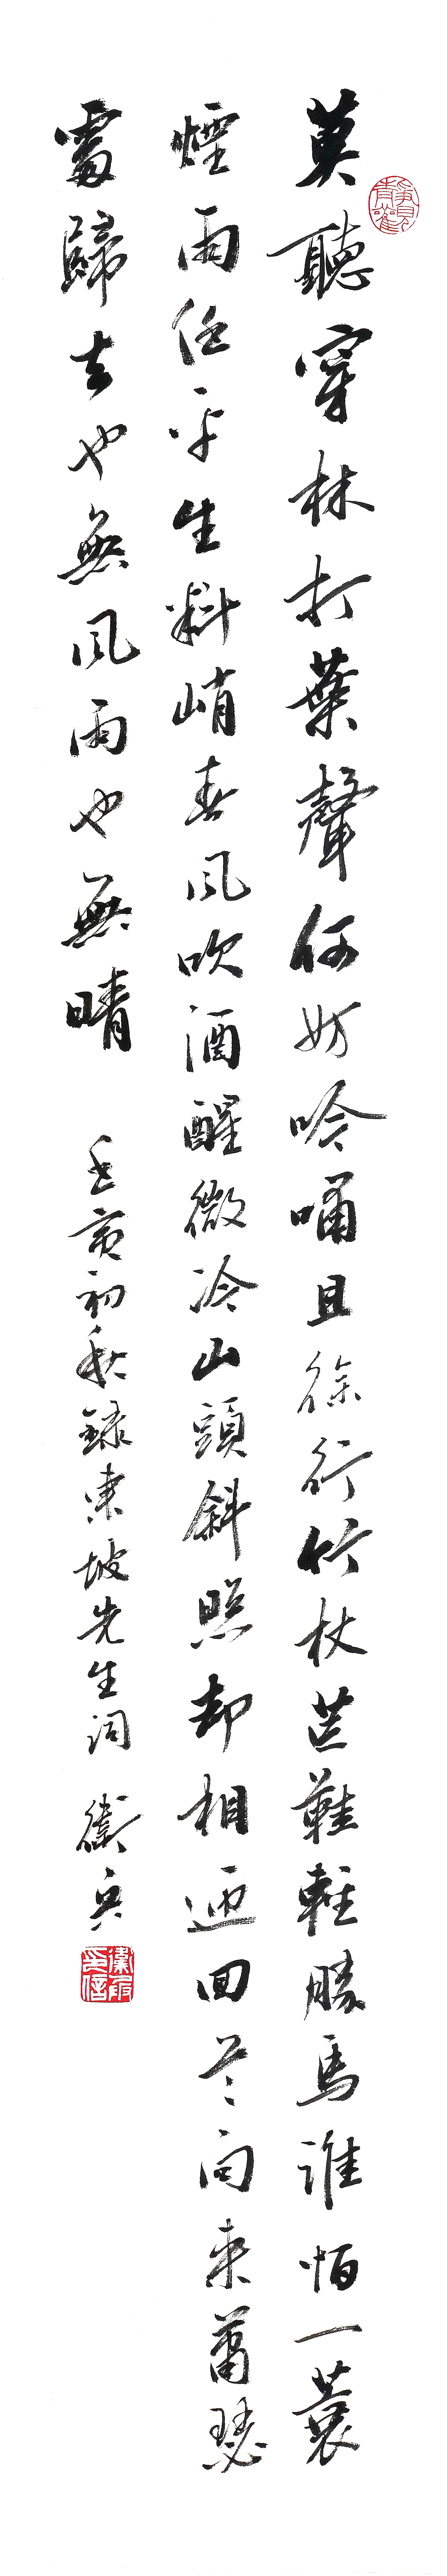 莫聽穿林打葉聲何妨吟嘯且徐行竹杖芒鞋輕勝馬誰怕一蓑
煙雨任平生料峭春風吹酒醒微冷山頭斜照却相迎回首向來蕭瑟
處歸去也無風雨也無晴
初秋錄東坡先生詞 衛兵